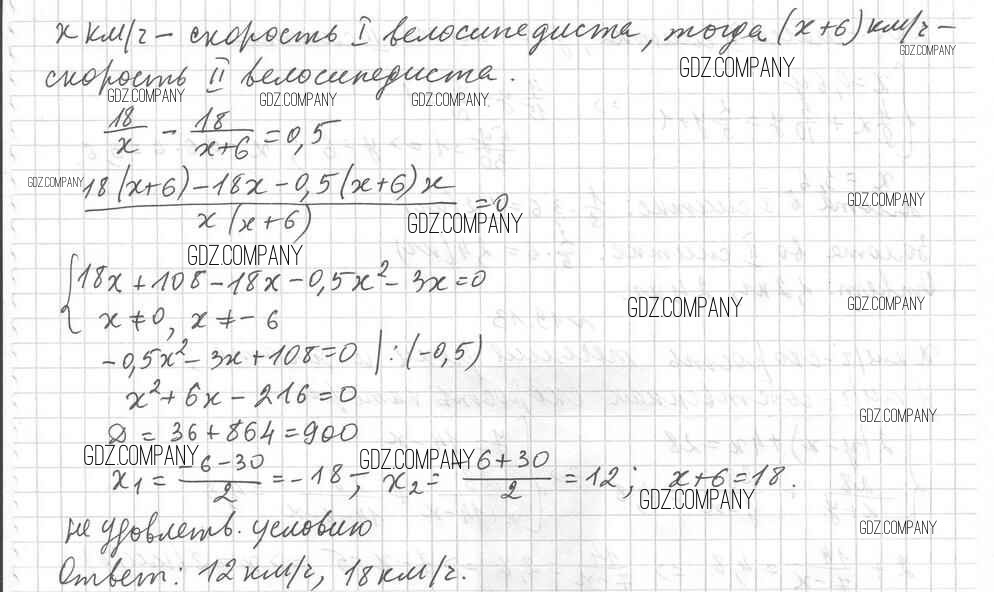 x км/ч – скорость I велосипедиста, тогда (x+6) км/ч –
GDZ.COMPANY
GDZ.COMPANY
скорость II велосипедиста.
GDZ.COMPANY GDZ.COMPANY GDZ.COMPANY
18/x - 18/(x+6) = 0,5
GDZ.COMPANY
(18(x+6)-18x-0,5(x+6)x)/(x(x+6)) = 0
GDZ.COMPANY
GDZ.COMPANY
GDZ.COMPANY
{18x+108-18x-0,5x²-3x=0
GDZ.COMPANY GDZ.COMPANY
x≠0, x≠-6
-0,5x²-3x+108=0 |:(-0,5)
x²+6x-216=0
GDZ.COMPANY
D = 36+864=900
GDZ.COMPANY GDZ.COMPANY
x₁ = (-6-30)/2 = -18; x₂ = (-6+30)/2 = 12; x+6=18.
GDZ.COMPANY
не удовлетв. условию
GDZ.COMPANY
Ответ: 12 км/ч, 18 км/ч.